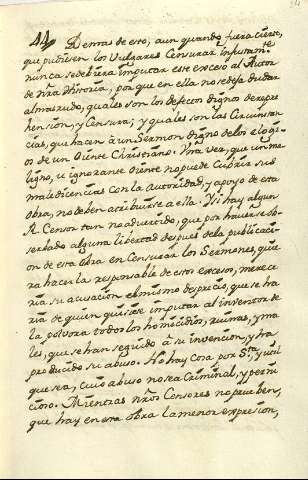 44 Demas de esto, aun quando fuera cierto,
que pudiesen los Vulgares Censurar injustam.te
nunca se debiera imputar este exceso al Autor
de nr̃a Historia, por que en ella no se dexa dudar
al mas rudo, quales son los defectos dignos de repre
hension, y Censura; y quales son las Circunstan
cias, que hacen à un Sermon digno de los elogi-
os de un Oiente Christiano. Vna vez, que un ma
ligno, u ignorante Oiente no puede Cubrir sus
maledicencias Con la autoridad, y apoyo de esta
Obra, no deben atribuirse a ella. Y si hay algun
R. Censor tan no advertido, que por haverse ob-
servado alguna libertad despues de la publicaci-
on de esta Obra en Censurar los Sermones, quie
ra hacerla responsable de estos excesos, merece
ria su acusacion el mismo desprecio, que se ha
ria de quien quisiese imputar al inventor de
la polvora todos los homicidios, ruinas, y ma
les, que se han seguido à su invencion, y ha
producido su abuso. No hay cosa por S.ta, y util
que sea, cuio abuso no sea Criminal, y perni
cioso. Mientras nr̃os Censores no prueben,
que hay en esta Obra la menor expresion,